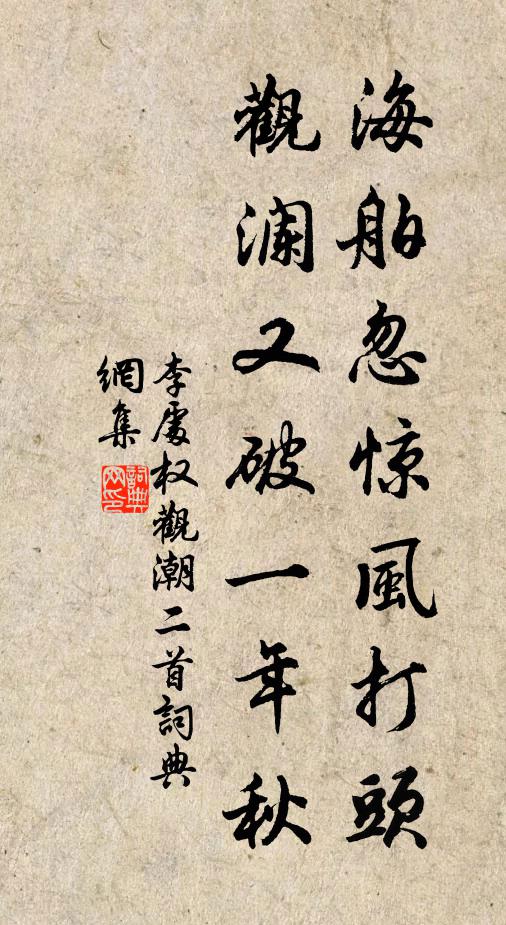 海舶忽惊風打頭
觀澜又破一年秋
李處权觀潮二首詞典
網集
詞典
网印